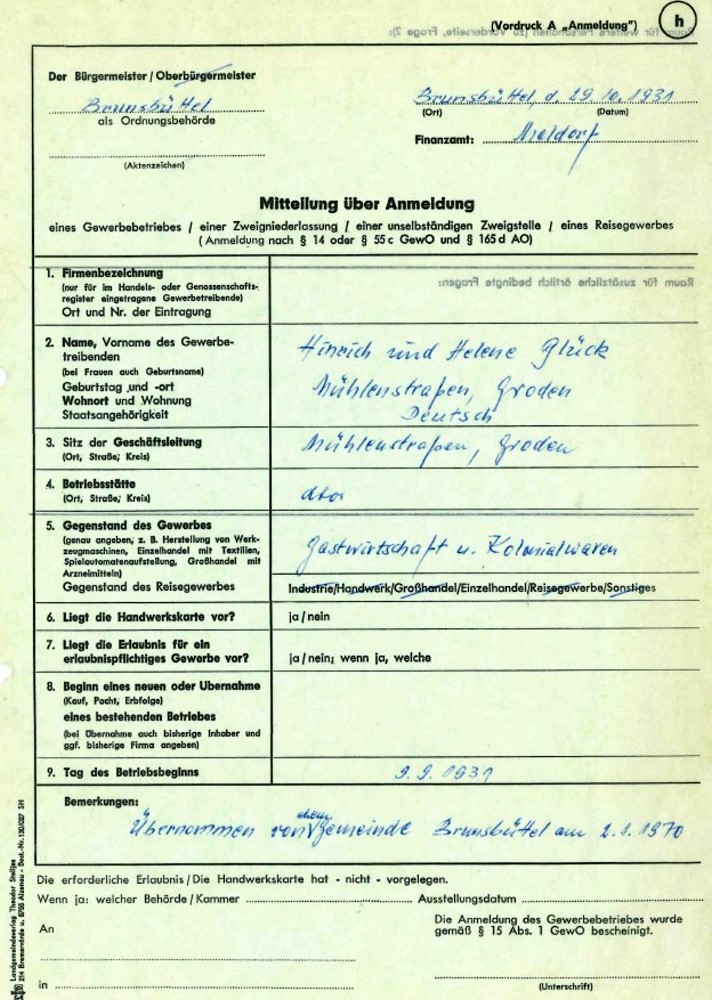 (Vordruck A „Anmeldung")
h
Raum für weitere Personalien (zu Vorderseite, Frage 2):
Der Bürgermeister / Oberbürgermeister
Brunsbüttel
als Ordnungsbehörde
(Aktenzeichen)
Brunsbüttel, d. 29.10.1931
(Ort) (Datum)
Finanzamt: Meldorf
Mitteilung über Anmeldung
eines Gewerbebetriebes / einer Zweigniederlassung / einer unselbständigen Zweigstelle / eines Reisegewerbes
(Anmeldung nach § 14 oder § 55 c GewO und § 165 d AO)
1. Firmenbezeichnung
(nur für im Handels- oder Genossenschafts-
register eingetragene Gewerbetreibende)
Ort und Nr. der Eintragung
Raum für zusätzliche örtlich bedingte Fragen:
2. Name, Vorname des Gewerbe-
treibenden
(bei Frauen auch Geburtsname)
Geburtstag und -ort
Wohnort und Wohnung
Staatsangehörigkeit
Hinrich und Helene Glück
Mühlenstraßen, Groden
Deutsch
3. Sitz der Geschäftsleitung
(Ort, Straße, Kreis)
Mühlenstraßen, Groden
4. Betriebsstätte
(Ort, Straße, Kreis)
dto.
5. Gegenstand des Gewerbes
(genau angeben, z. B. Herstellung von Werk-
zeugmaschinen, Einzelhandel mit Textilien,
Spielautomatenaufstellung, Großhandel mit
Arzneimitteln)
Gegenstand des Reisegewerbes
Gastwirtschaft u. Kolonialwaren
Industrie/Handwerk/Großhandel/Einzelhandel/Reisegewerbe/Sonstiges
6. Liegt die Handwerkskarte vor?
ja / nein
7. Liegt die Erlaubnis für ein
erlaubnispflichtiges Gewerbe vor?
ja / nein; wenn ja, welche
8. Beginn eines neuen oder Übernahme
(Kauf, Pacht, Erbfolge)
eines bestehenden Betriebes
(bei Übernahme auch bisherige Inhaber und
ggf. bisherige Firma angeben)
9. Tag des Betriebsbeginns
9.9.1931
Bemerkungen:
Übernommen von ehem. Gemeinde Brunsbüttel am 2.1.1970
Die erforderliche Erlaubnis / Die Handwerkskarte hat - nicht - vorgelegen.
Wenn ja: welcher Behörde / Kammer Ausstellungsdatum
An
Die Anmeldung des Gewerbebetriebes wurde
gemäß § 15 Abs. 1 GewO bescheinigt.
in
(Unterschrift)
Landgemeindeverlag Theodor Stelljes